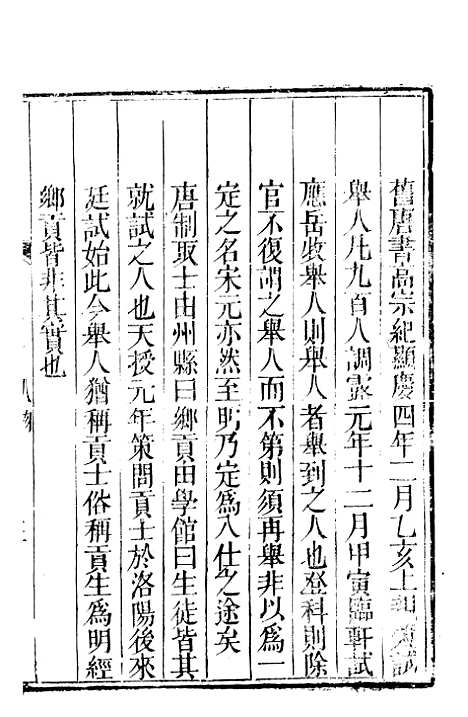 舊唐書高宗紀顯慶四年二月乙亥上親策試
舉人凡九百人調露元年十二月甲寅臨軒試
應岳牧舉人則舉人者舉到之人也登科則除
官不復謂之舉人而不第則須再舉非以爲一
定之名宋元亦然至明乃定爲入仕之途矣
唐制取士由州縣曰鄉貢由學館曰生徒皆其
就試之人也天授元年策問貢士於洛陽後來
廷試始此今舉人猶稱貢士俗稱貢生爲明經
鄉貢皆非其實也